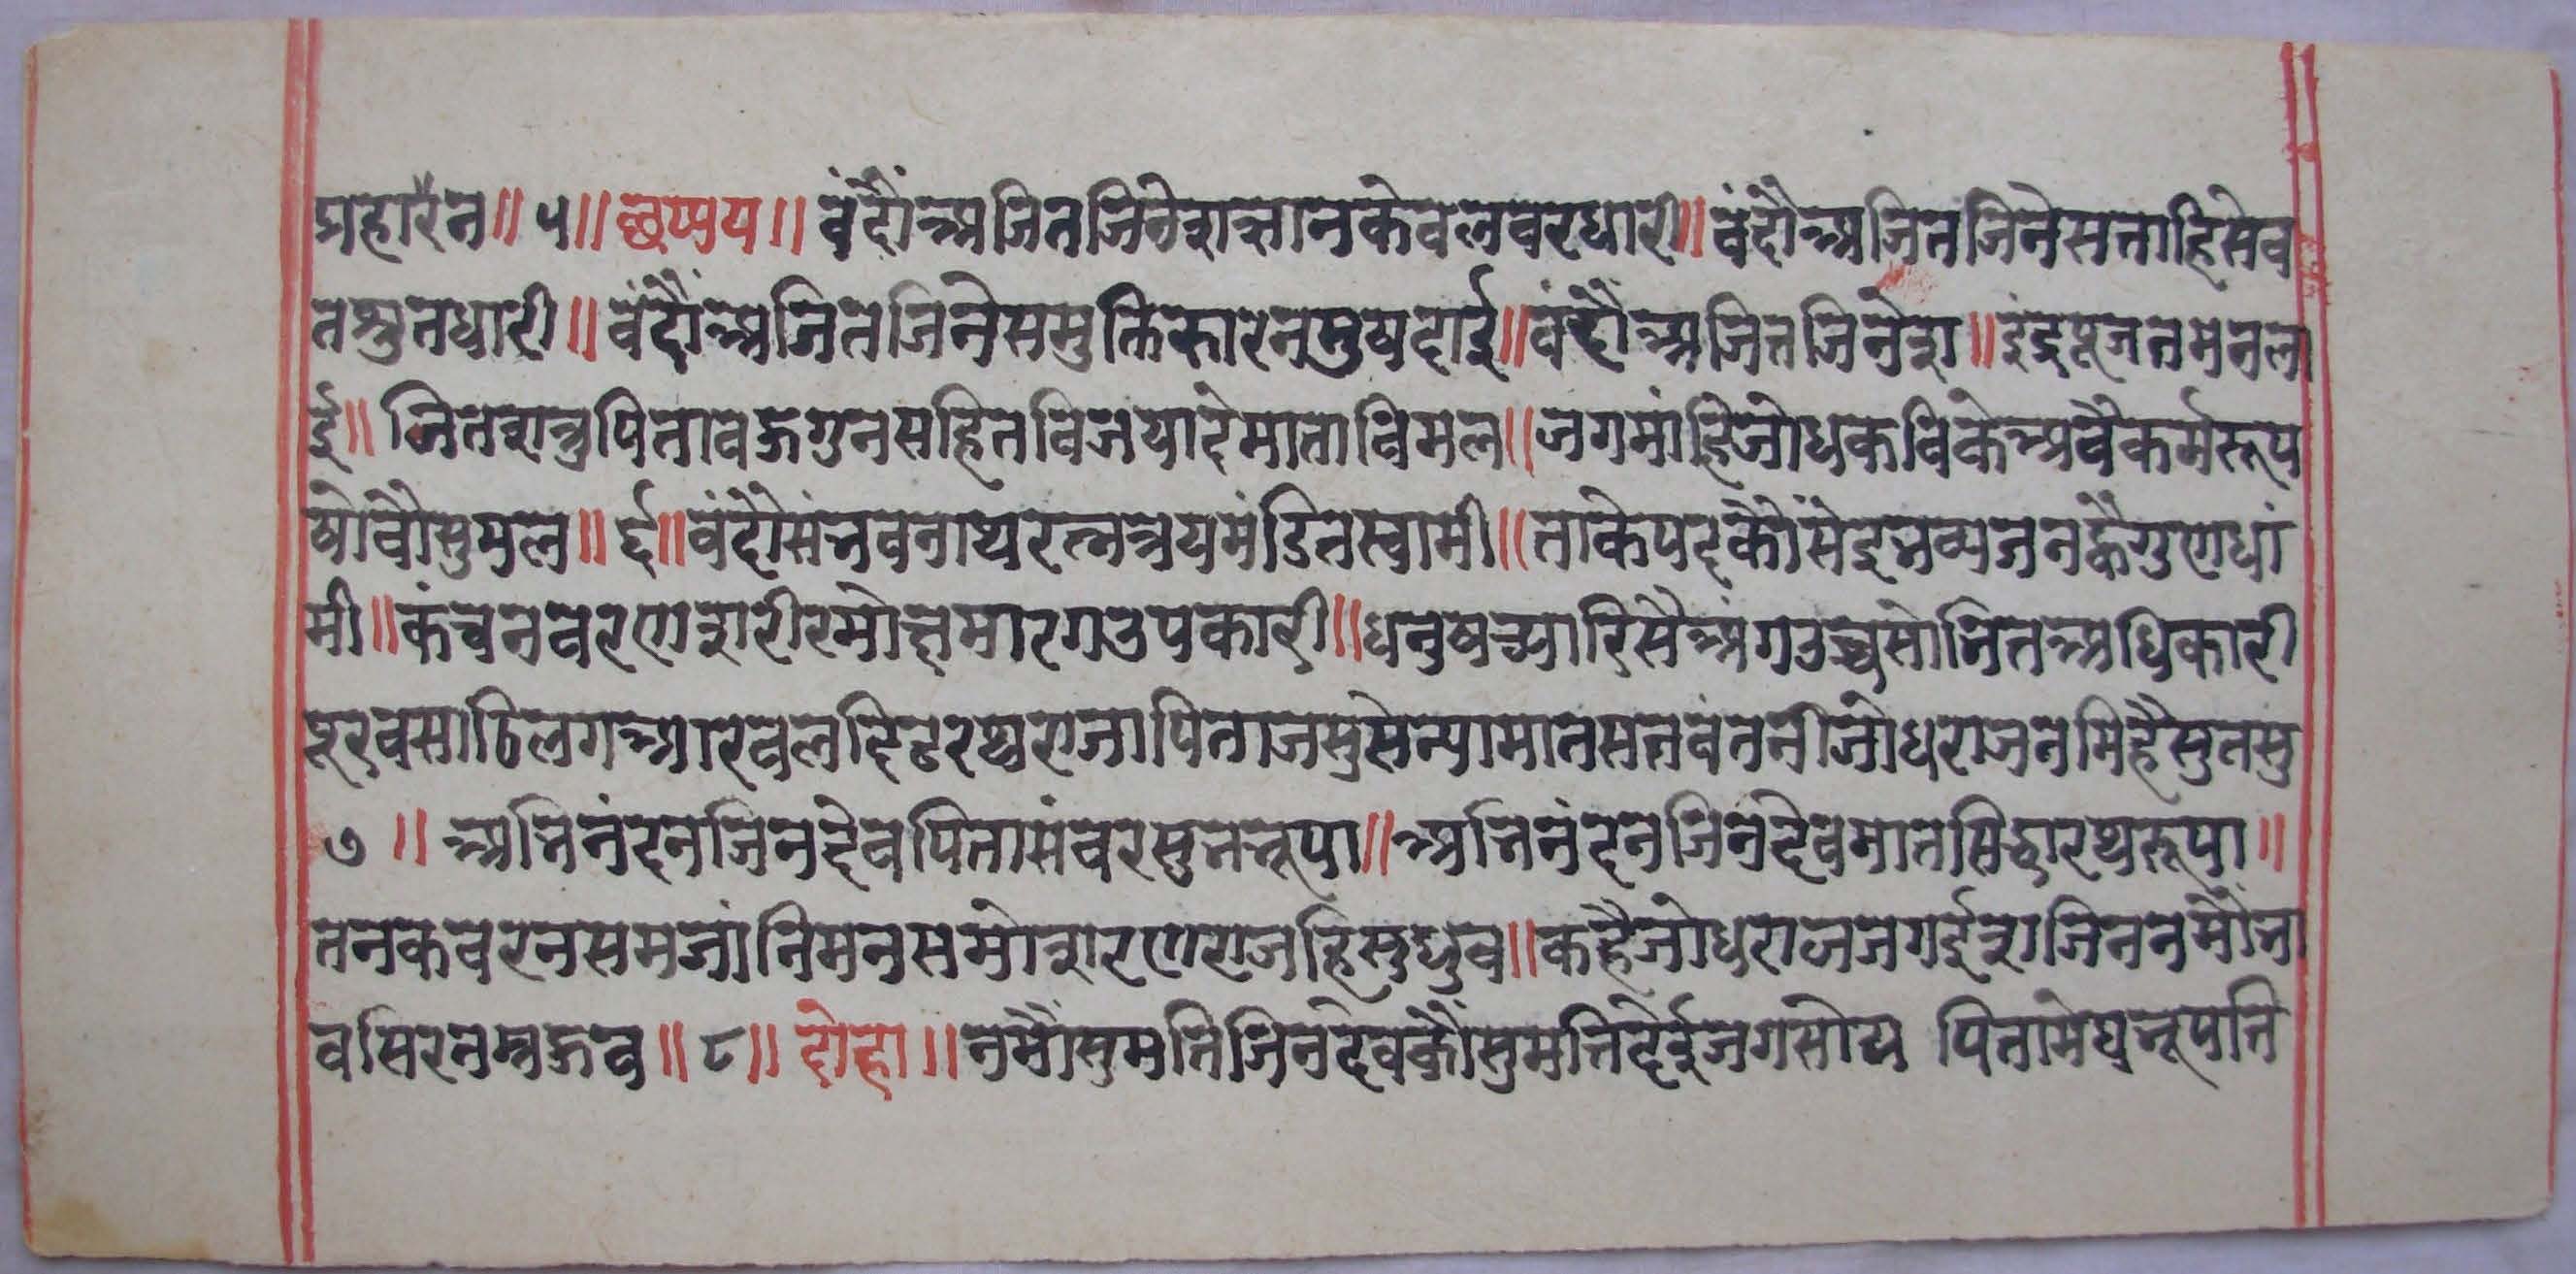 प्रहारैन॥५॥छप्पय॥वंदौंअजितजिनेशज्ञानकेवलवरधारी॥वंदौंअजितजिनेसताहिसेव
तश्रुतधारी॥वंदौंअजितजिनेसमुक्तिकारनसुषदाई॥वंदौंअजितजिनेश॥इंद्रपूजतमनला
ई॥जितशत्रुपिताबहुगुनसहितविजयादेमाताविमल॥जगमांहिजोधकविकेअबैकर्मरूप
षोवौसुमल॥६॥वंदौंसंभवनाथरत्नत्रयमंडितस्वामी॥ताकेपदकौंसेइभव्यजनह्वैगुणधां
मी॥कंचनवरणशरीरमोक्षमारगउपकारी॥धनुषच्यारिसैअंगउच्चसोभितअधिकारी
पूरवसाठिलगआरवलदिढरथराजापिताजसुसेन्यामातसतवंतनीजोधराजनमिहैसुतसु
७॥अभिनंदनजिनदेवपितासंवरसुतभूपा॥अभिनंदनजिनदेवमातसिद्धारथरूपा॥
तनकवरनसमजांनिमनसमोशरणराजहिसुध्रुव॥कहैजोधराजजगईशजिननमौंभा
वसिरनम्रहुव॥८॥दोहा॥नमौंसुमतिजिनदेवकौंसुमतिदेईजगसोय पितामेघभूपति